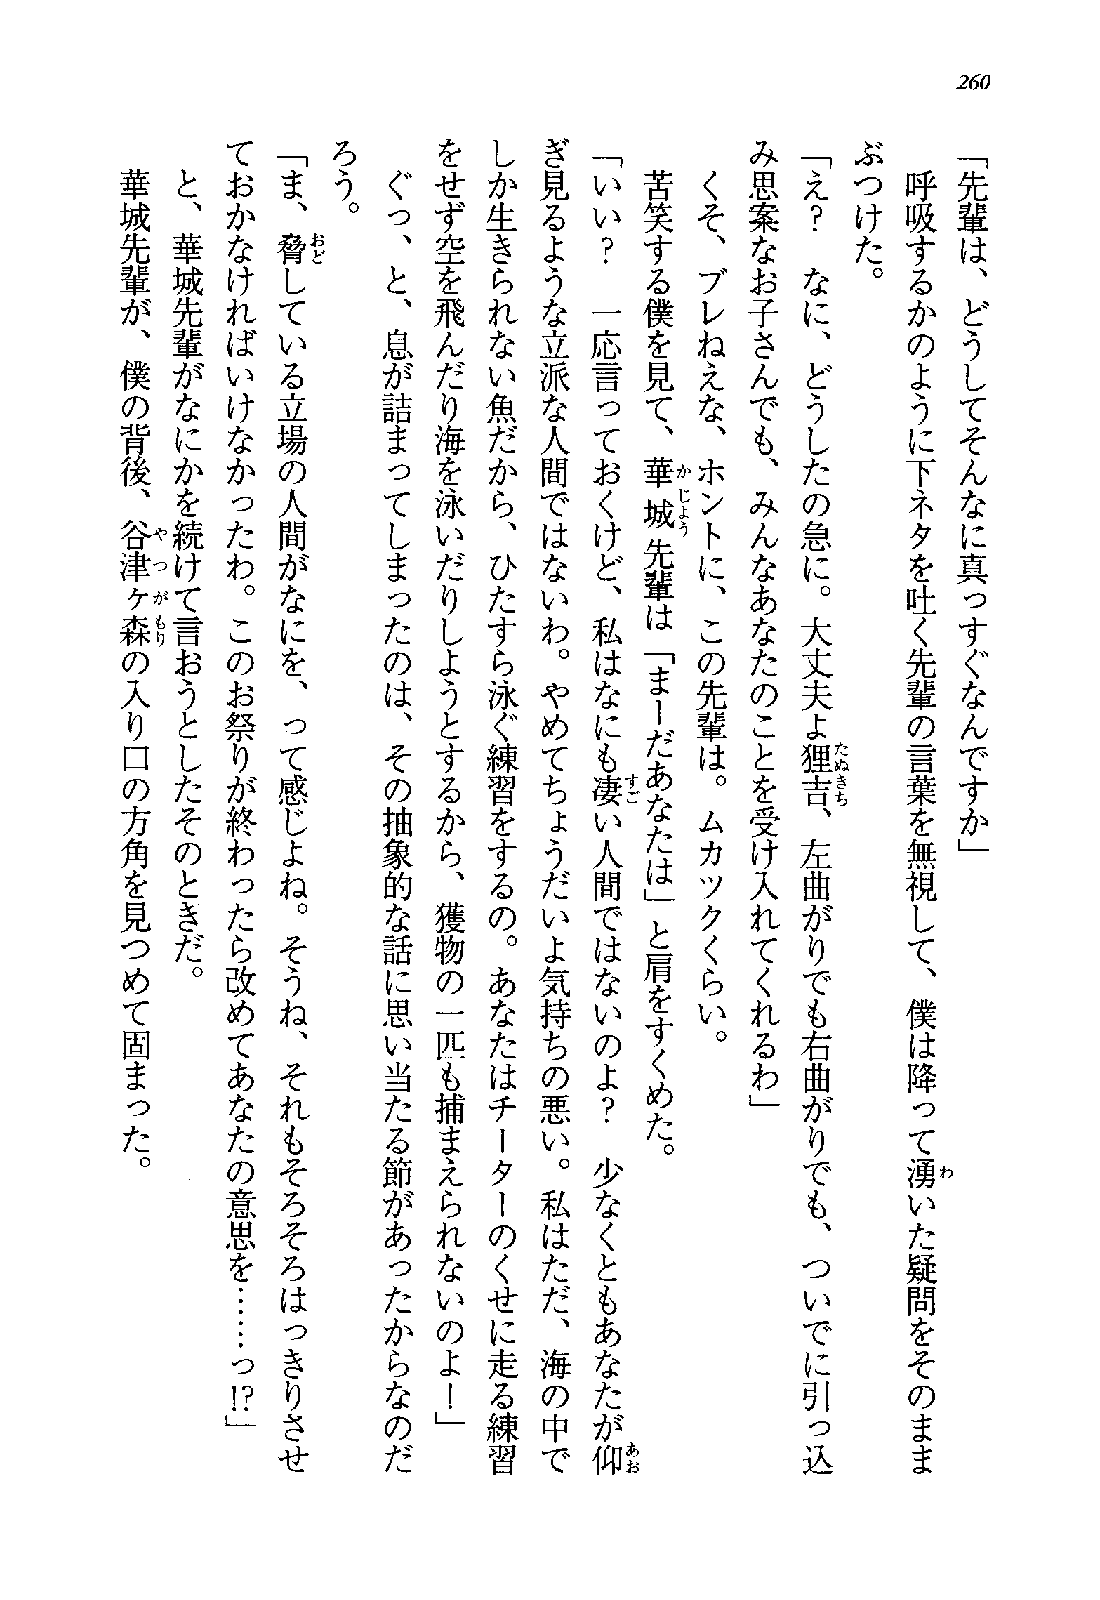 260
「先輩は、どうしてそんなに真っすぐなんですか」
　呼吸するかのように下ネタを吐く先輩の言葉を無視して、僕は降って湧いた疑問をそのまま
ぶつけた。
「え？　なに、どうしたの急に。大丈夫よ狸吉、左曲がりでも右曲がりでも、ついでに引っ込
み思案なお子さんでも、みんなあなたのことを受け入れてくれるわ」
　くそ、ブレねえな、ホントに、この先輩は。ムカックくらい。
　苦笑する僕を見て、華城先輩は「まーだあなたは」と肩をすくめた。
「いい？　一応言っておくけど、私はなにも凄い人間ではないのよ？　少なくともあなたが仰
ぎ見るような立派な人間ではないわ。やめてちょうだいよ気持ちの悪い。私はただ、海の中で
しか生きられない魚だから、ひたすら泳ぐ練習をするの。あなたはチーターのくせに走る練習
をせず空を飛んだり海を泳いだりしようとするから、獲物の一匹も捕まえられないのよー」
　ぐっ、と、息が詰まってしまったのは、その抽象的な話に思い当たる節があったからなのだ
ろう。
「ま、脅している立場の人間がなにを、って感じよね。そうね、それもそろそろはっきりさせ
ておかなければいけなかったわ。このお祭りが終わったら改めてあなたの意思を……っ!?」
　と、華城先輩がなにかを続けて言おうとしたそのときだ。
　華城先輩が、僕の背後、谷津ヶ森の入り口の方角を見つめて固まった。